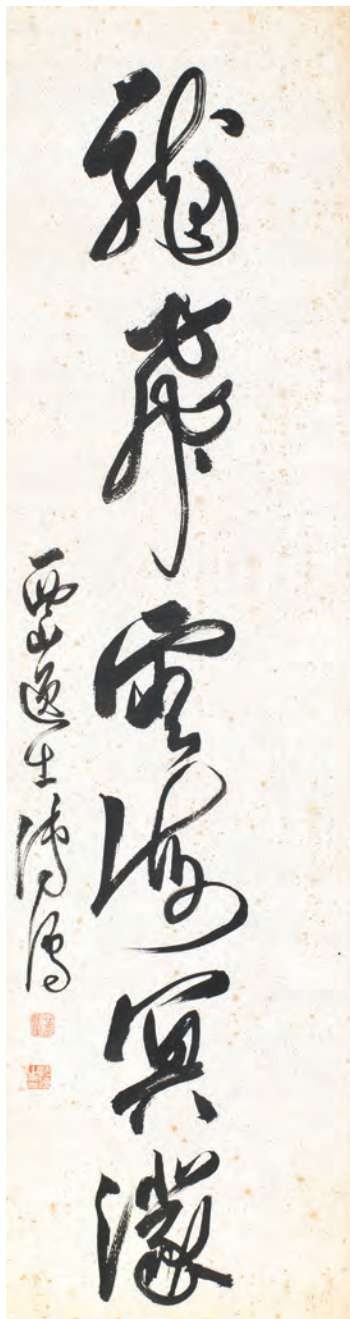 龍飛雲海冥濛
西山逸士溥儒